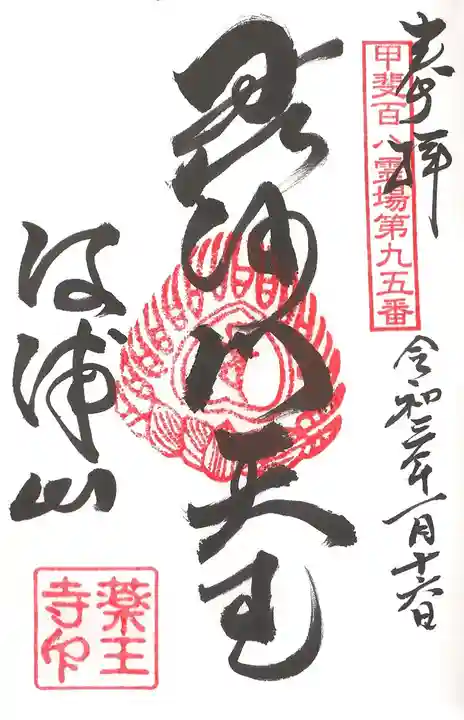 奉拝
甲斐百八霊場第九五番
令和三年一月十六日
毘沙門天王
法浦山
薬王
寺印